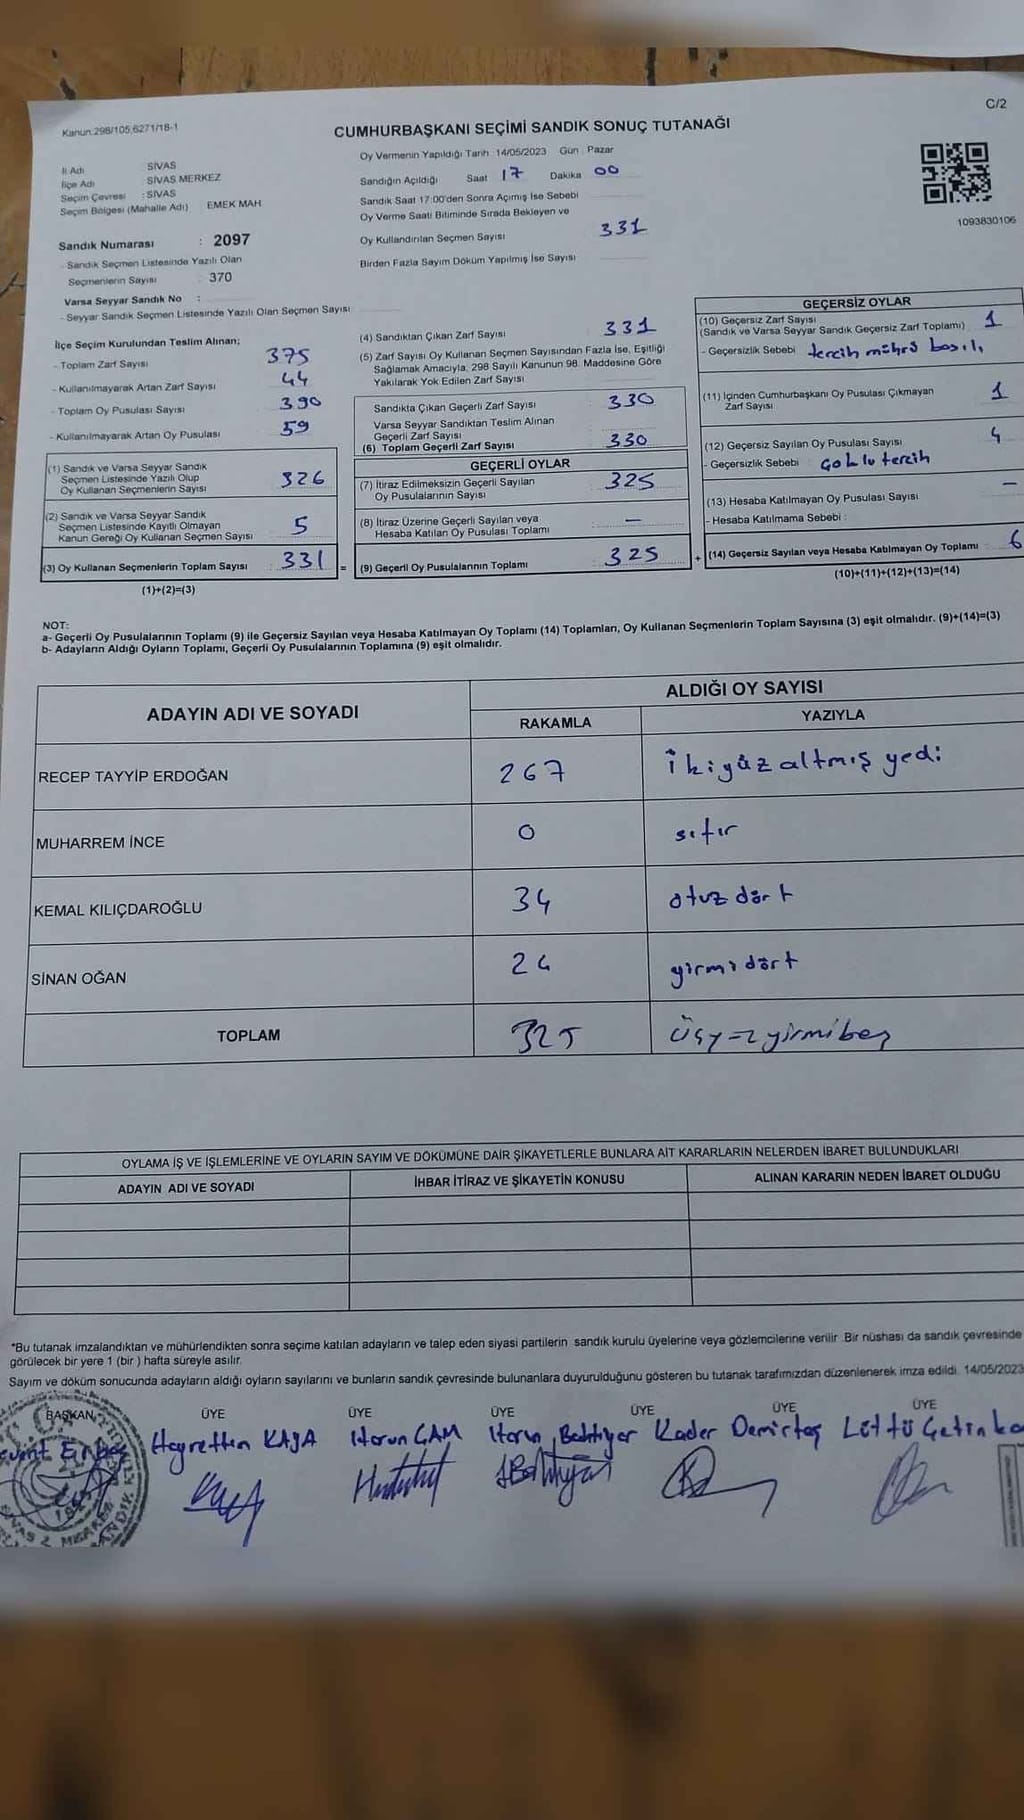 C/2
Kanun:298/105,6271/18-1
CUMHURBAŞKANI SEÇİMİ SANDIK SONUÇ TUTANAĞI
İl Adı SİVAS
İlçe Adı SİVAS MERKEZ
Seçim Çevresi : SİVAS
Seçim Bölgesi (Mahalle Adı) EMEK MAH
Sandık Numarası : 2097
- Sandık Seçmen Listesinde Yazılı Olan
Seçmenlerin Sayısı 370
Varsa Seyyar Sandık No :
- Seyyar Sandık Seçmen Listesinde Yazılı Olan Seçmen Sayısı
Oy Vermenin Yapıldığı Tarih 14/05/2023 Gün Pazar
Sandığın Açıldığı Saat 17 Dakika 00
Sandık Saat 17:00'den Sonra Açımış İse Sebebi
Oy Verme Saati Bitiminde Sırada Bekleyen ve
Oy Kullandırılan Seçmen Sayısı 331
Birden Fazla Sayım Döküm Yapılmış İse Sayısı
1093830106
İlçe Seçim Kurulundan Teslim Alınan;
- Toplam Zarf Sayısı 375
- Kullanılmayarak Artan Zarf Sayısı 44
- Toplam Oy Pusulası Sayısı 390
- Kullanılmayarak Artan Oy Pusulası 59
(1) Sandık ve Varsa Seyyar Sandık
Seçmen Listesinde Yazılı Olup
Oy Kullanan Seçmenlerin Sayısı 326
(2) Sandık ve Varsa Seyyar Sandık
Seçmen Listesinde Kayıtlı Olmayan
Kanun Gereği Oy Kullanan Seçmen Sayısı 5
(3) Oy Kullanan Seçmenlerin Toplam Sayısı : 331 =
(1)+(2)=(3)
(4) Sandıktan Çıkan Zarf Sayısı 331
(5) Zarf Sayısı Oy Kullanan Seçmen Sayısından Fazla İse, Eşitliği
Sağlamak Amacıyla, 298 Sayılı Kanunun 98. Maddesine Göre
Yakılarak Yok Edilen Zarf Sayısı
Sandıkta Çıkan Geçerli Zarf Sayısı 330
Varsa Seyyar Sandıktan Teslim Alınan
Geçerli Zarf Sayısı
(6) Toplam Geçerli Zarf Sayısı 330
GEÇERLİ OYLAR
(7) İtiraz Edilmeksizin Geçerli Sayılan
Oy Pusulalarının Sayısı 325
(8) İtiraz Üzerine Geçerli Sayılan veya
Hesaba Katılan Oy Pusulası Toplamı : –
(9) Geçerli Oy Pusulalarının Toplamı 325 +
GEÇERSİZ OYLAR
(10) Geçersiz Zarf Sayısı
(Sandık ve Varsa Seyyar Sandık Geçersiz Zarf Toplamı) 1
- Geçersizlik Sebebi tercih mührü basılı
(11) İçinden Cumhurbaşkanı Oy Pusulası Çıkmayan
Zarf Sayısı 1
(12) Geçersiz Sayılan Oy Pusulası Sayısı 4
- Geçersizlik Sebebi : çoklu tercih
(13) Hesaba Katılmayan Oy Pusulası Sayısı –
- Hesaba Katılmama Sebebi :
(14) Geçersiz Sayılan veya Hesaba Katılmayan Oy Toplamı : 6
(10)+(11)+(12)+(13)=(14)
NOT:
a- Geçerli Oy Pusulalarının Toplamı (9) ile Geçersiz Sayılan veya Hesaba Katılmayan Oy Toplamı (14) Toplamları, Oy Kullanan Seçmenlerin Toplam Sayısına (3) eşit olmalıdır. (9)+(14)=(3)
b- Adayların Aldığı Oyların Toplamı, Geçerli Oy Pusulalarının Toplamına (9) eşit olmalıdır.
ADAYIN ADI VE SOYADI
ALDIĞI OY SAYISI
RAKAMLA YAZIYLA
RECEP TAYYİP ERDOĞAN 267 ikiyüzaltmış yedi
MUHARREM İNCE 0 sıfır
KEMAL KILIÇDAROĞLU 34 otuz dört
SİNAN OĞAN 24 yirmi dört
TOPLAM 325 üçyüz yirmibeş
OYLAMA İŞ VE İŞLEMLERİNE VE OYLARIN SAYIM VE DÖKÜMÜNE DAİR ŞİKAYETLERLE BUNLARA AİT KARARLARIN NELERDEN İBARET BULUNDUKLARI
ADAYIN ADI VE SOYADI İHBAR İTİRAZ VE ŞİKAYETİN KONUSU ALINAN KARARIN NEDEN İBARET OLDUĞU
*Bu tutanak imzalandıktan ve mühürlendikten sonra seçime katılan adayların ve talep eden siyasi partilerin sandık kurulu üyelerine veya gözlemcilerine verilir. Bir nüshası da sandık çevresinde
görülecek bir yere 1 (bir ) hafta süreyle asılır.
Sayım ve döküm sonucunda adayların aldığı oyların sayılarını ve bunların sandık çevresinde bulunanlara duyurulduğunu gösteren bu tutanak tarafımızdan düzenlenerek imza edildi. 14/05/2023
BAŞKAN ÜYE ÜYE ÜYE ÜYE ÜYE ÜYE
Hayrettin KAYA Harun ÇAM Harun Bahtiyar Kader Demirtaş Lütfü